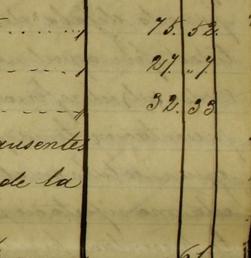 75. 52
27. " 7
32. 33
ausentes
de la